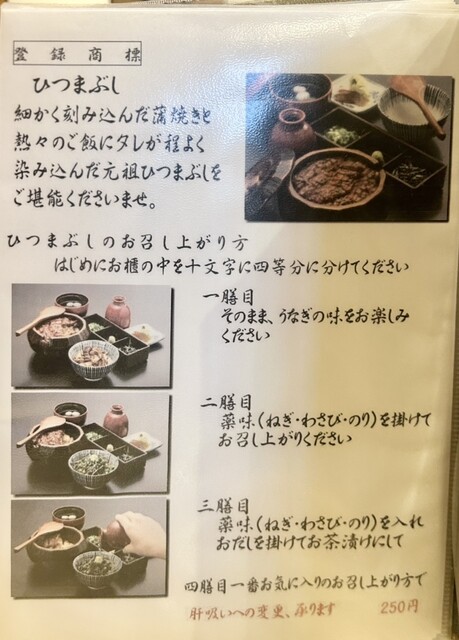 登録商標
ひつまぶし
細かく刻み込んだ蒲焼きと
熱々のご飯にタレが程よく
染み込んだ元祖ひつまぶしを
ご堪能くださいませ。
ひつまぶしのお召し上がり方
はじめにお櫃の中を十文字に四等分に分けてください
一膳目
そのまま、うなぎの味をお楽しみ
ください
二膳目
薬味(ねぎ・わさび・のり)を掛けて
お召し上がりください
三膳目
薬味(ねぎ・わさび・のり)を入れ
おだしを掛けてお茶漬けにして
四膳目一番お気に入りのお召し上がり方で
肝吸いへの変更、承ります 250円